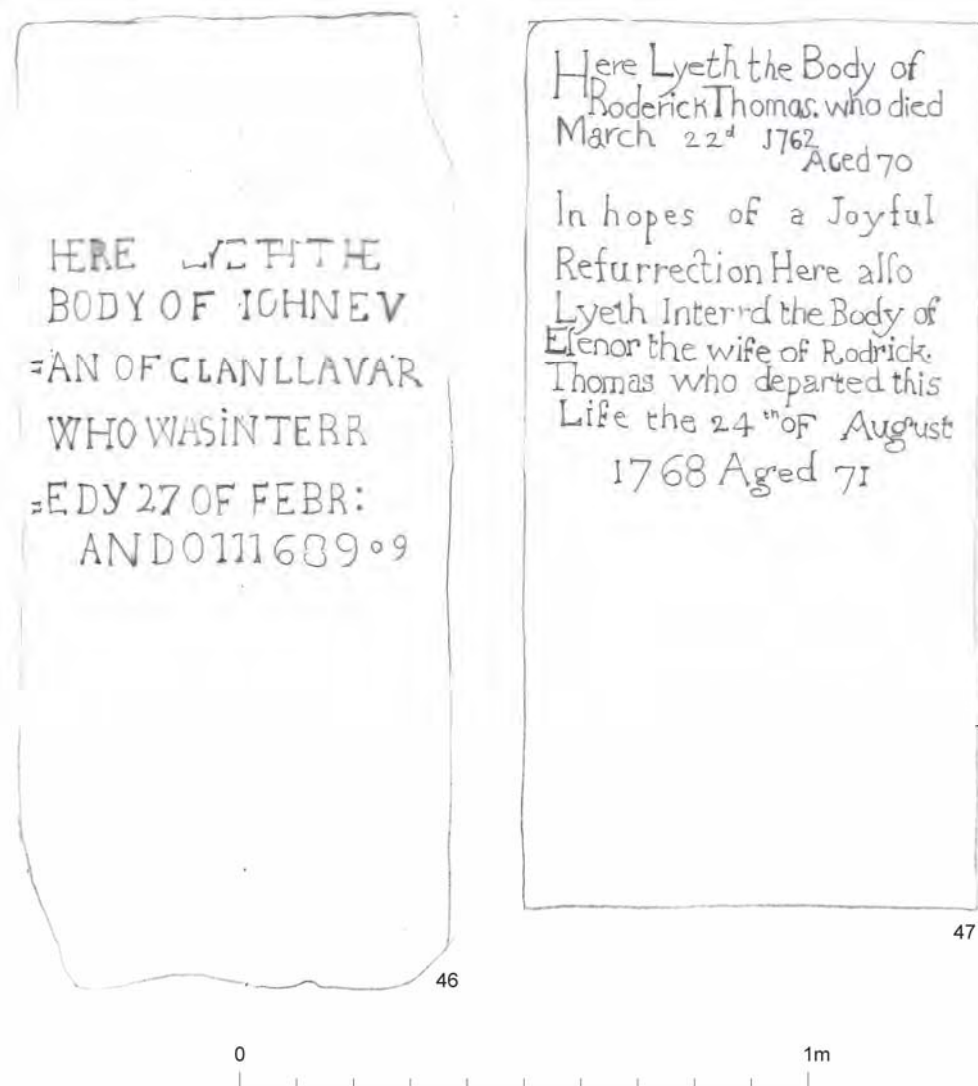 HERE LYETH THE
BODY OF IOHN EV
=AN OF CLANLLAVAR
WHO WAS iNTERR
=ED Y 27 OF FEBR:
ANDO111689 o 9
46
Here Lyeth the Body of
Roderick Thomas. who died
March 22d 1762
Aced 70
In hopes of a Joyful
Refurrection Here alſo
Lyeth Interrd the Body of
Elenor the wife of Rodrick.
Thomas who departed this
Life the 24th of August
1768 Aged 71
47
0 1m